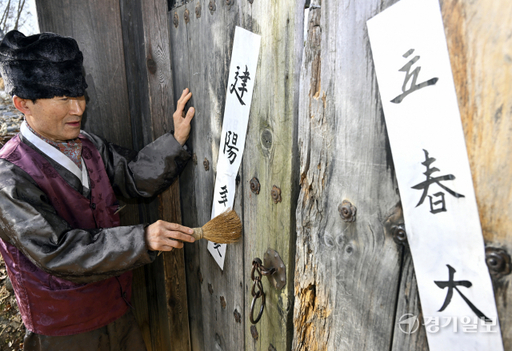 立春大
建陽多
경기일보